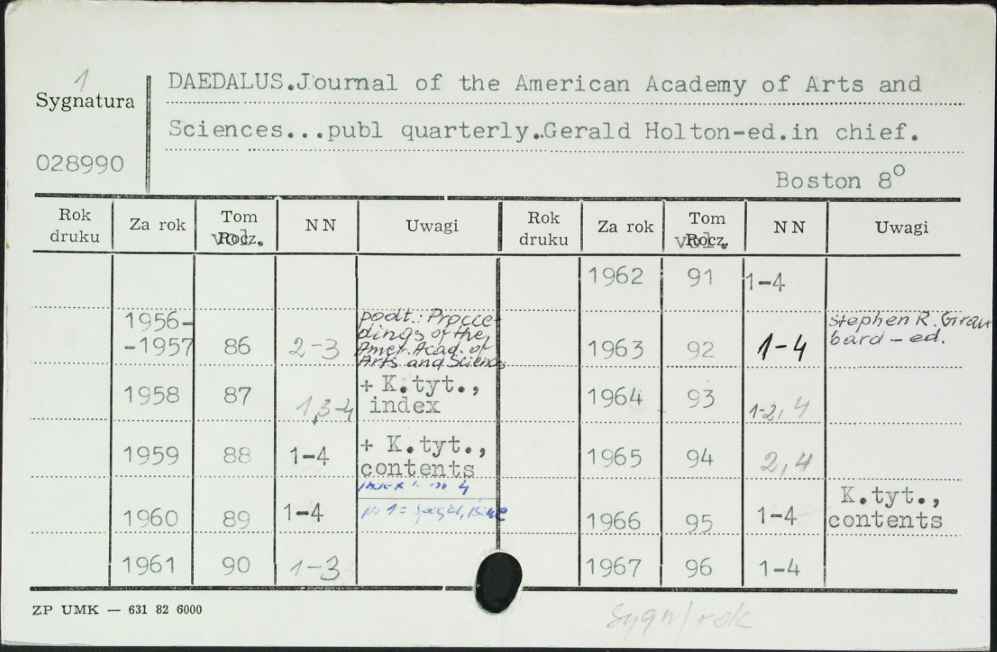 1
Sygnatura
028990
DAEDALUS.Journal of the American Academy of Arts and
Sciences...publ quarterly.Gerald Holton-ed.in chief.
Boston 8°
Rok druku | Za rok | Tom Rocz. vol. | NN | Uwagi | Rok druku | Za rok | Tom Rocz. vol. | NN | Uwagi
1962 91 1-4
1956-
-1957 86 2-3 podt.: Procce-
dings of the
Amer. Acad. of
Arts and Sciences
1963 92 1-4 Stephen R. Grau-
bard - ed.
1958 87 1,3-4 + K.tyt.,
index
1964 93 1-2, 4
1959 88 1-4 + K.tyt.,
contents
1965 94 2,4
4
1960 89 1-4 1=
1966 95 1-4 K.tyt.,
contents
1961 90 1-3
1967 96 1-4
ZP UMK — 631 82 6000
Sygn/rok